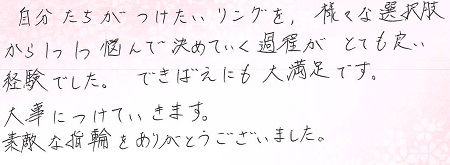 自分たちがつけたいリングを、様々な選択肢
から1つ1つ悩んで決めていく過程がとても良い
経験でした。 できばえにも大満足です。
大事につけていきます。
素敵な指輪をありがとうございました。